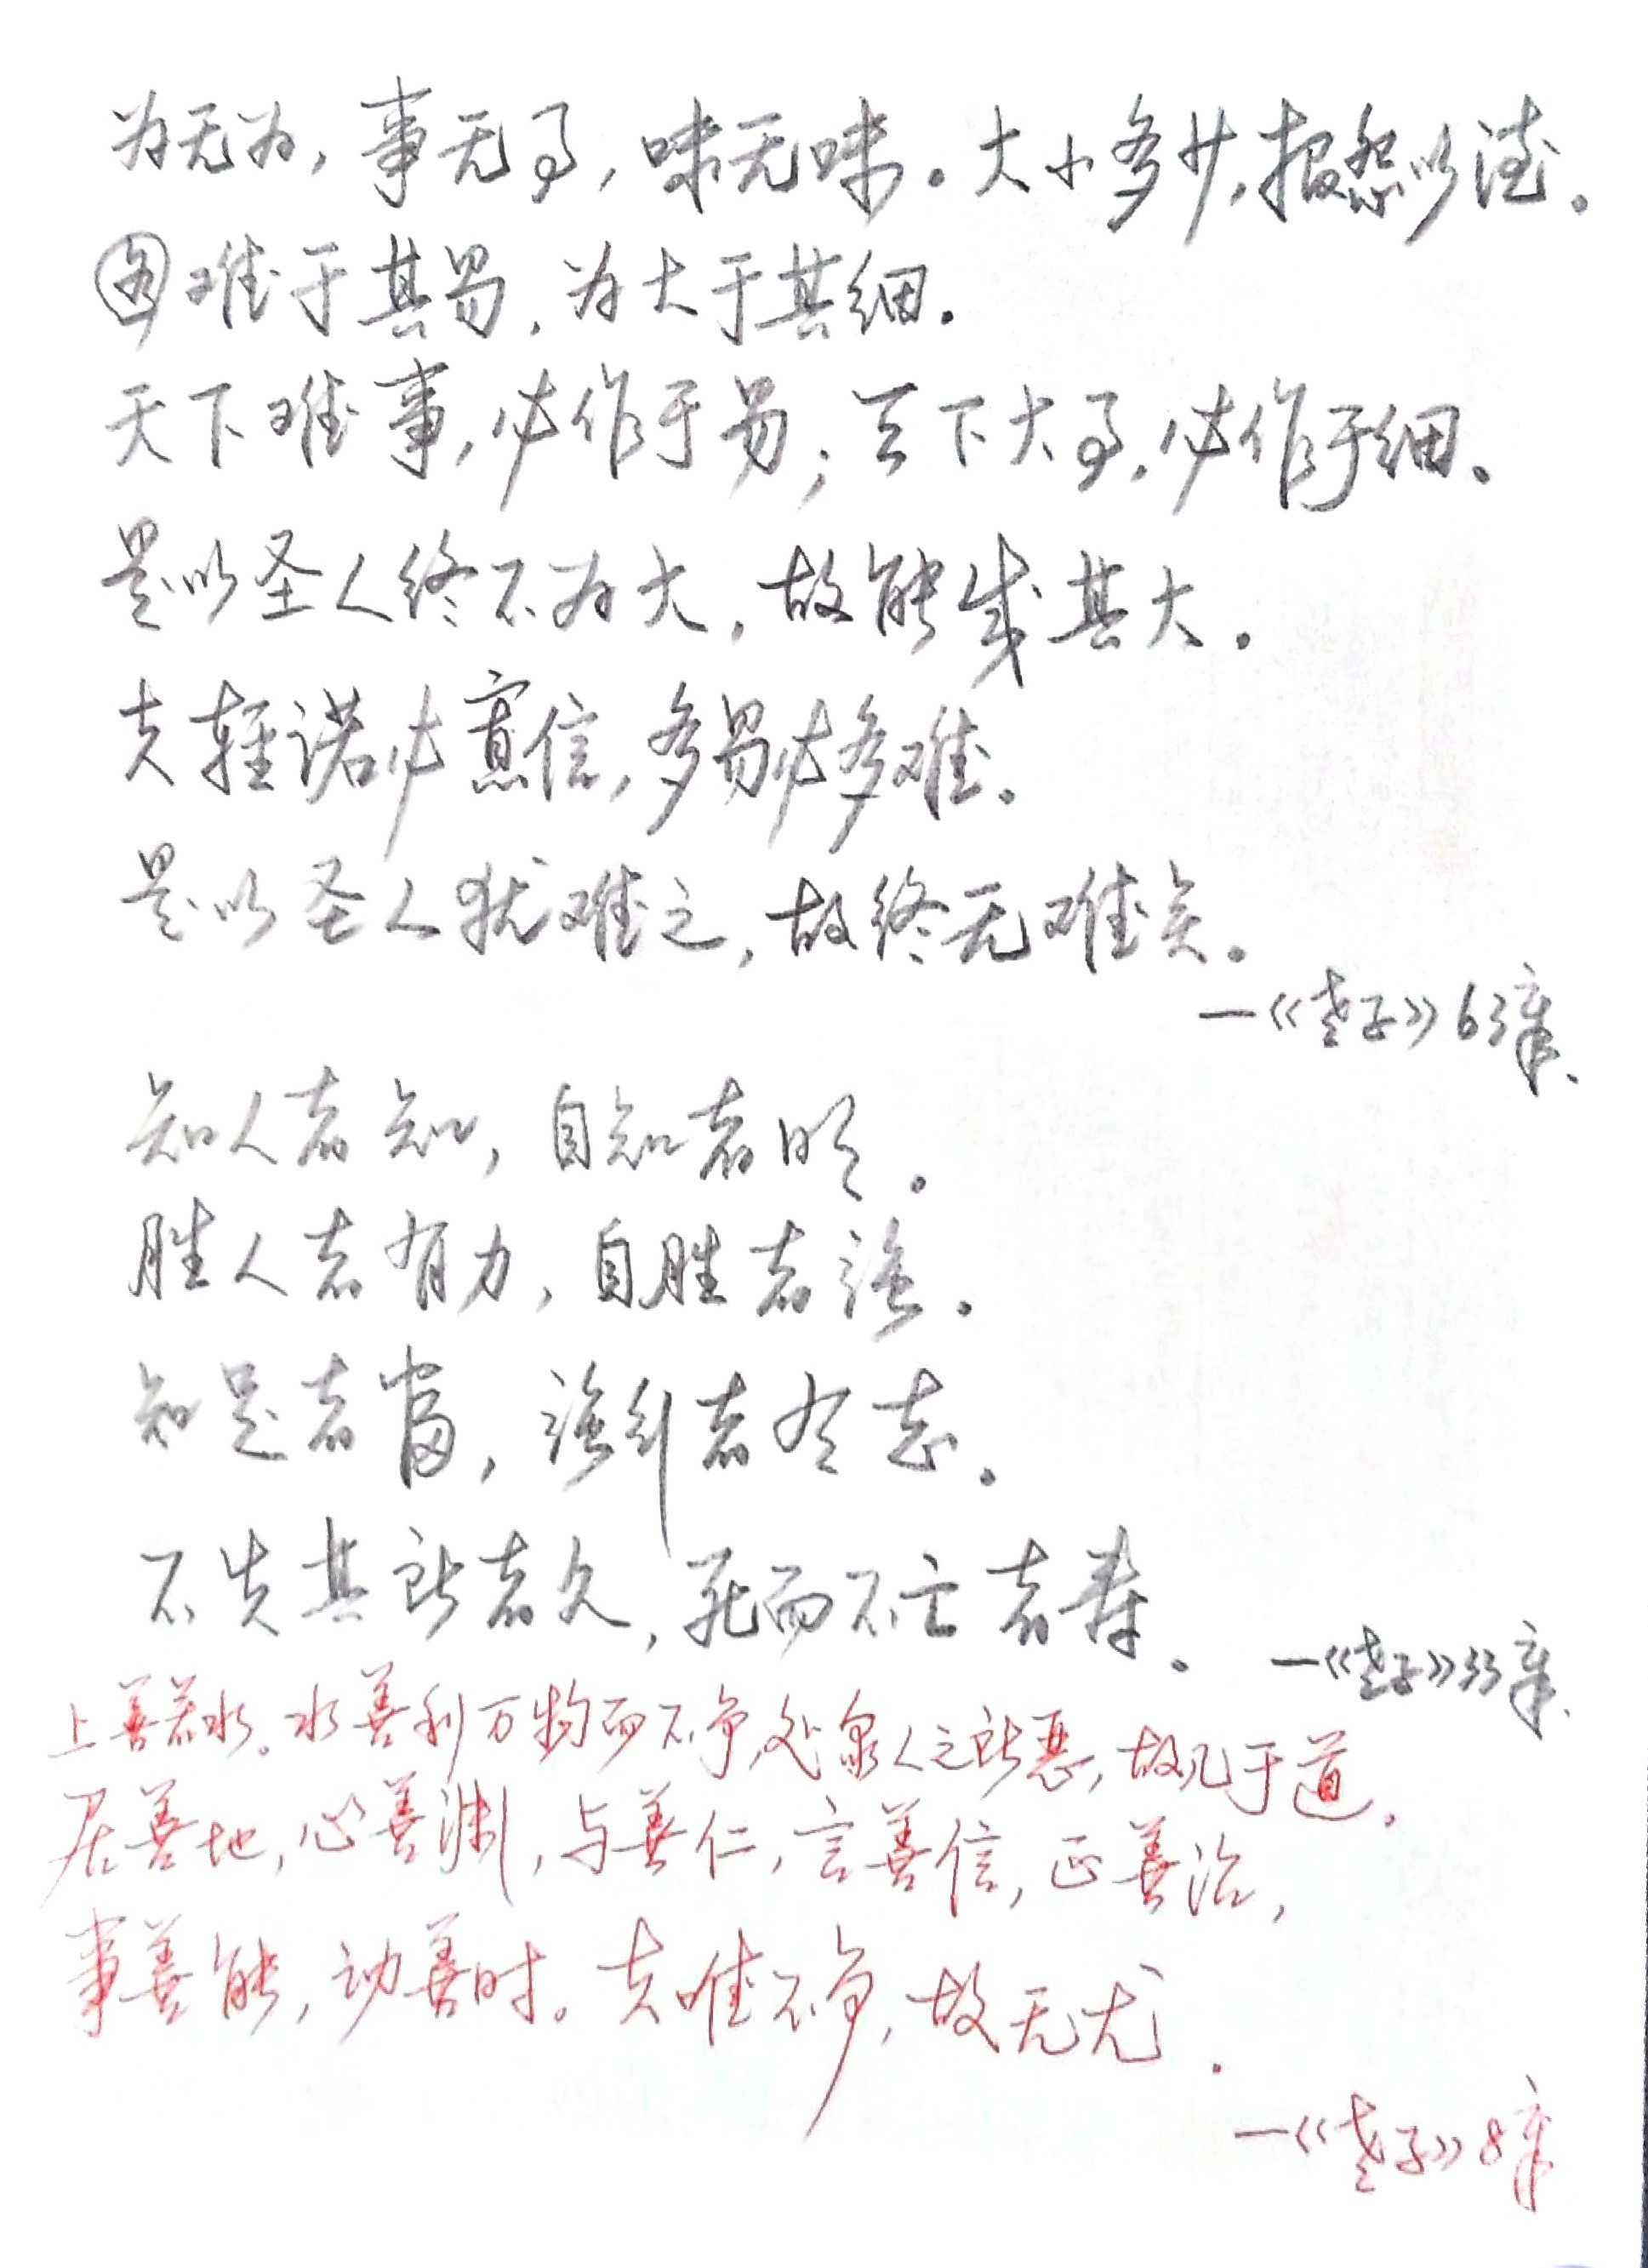 为无为，事无事，味无味。大小多少，报怨以德。
图难于其易，为大于其细。
天下难事，必作于易；天下大事，必作于细。
是以圣人终不为大，故能成其大。
夫轻诺必寡信，多易必多难。
是以圣人犹难之，故终无难矣。
—《老子》63章、
知人者知，自知者明。
胜人者有力，自胜者强。
知足者富，强行者有志。
不失其所者久，死而不亡者寿。
—《老子》33章、
上善若水。水善利万物而不争，处众人之所恶，故几于道。
居善地，心善渊，与善仁，言善信，正善治，
事善能，动善时。夫唯不争，故无尤．
—《老子》8章